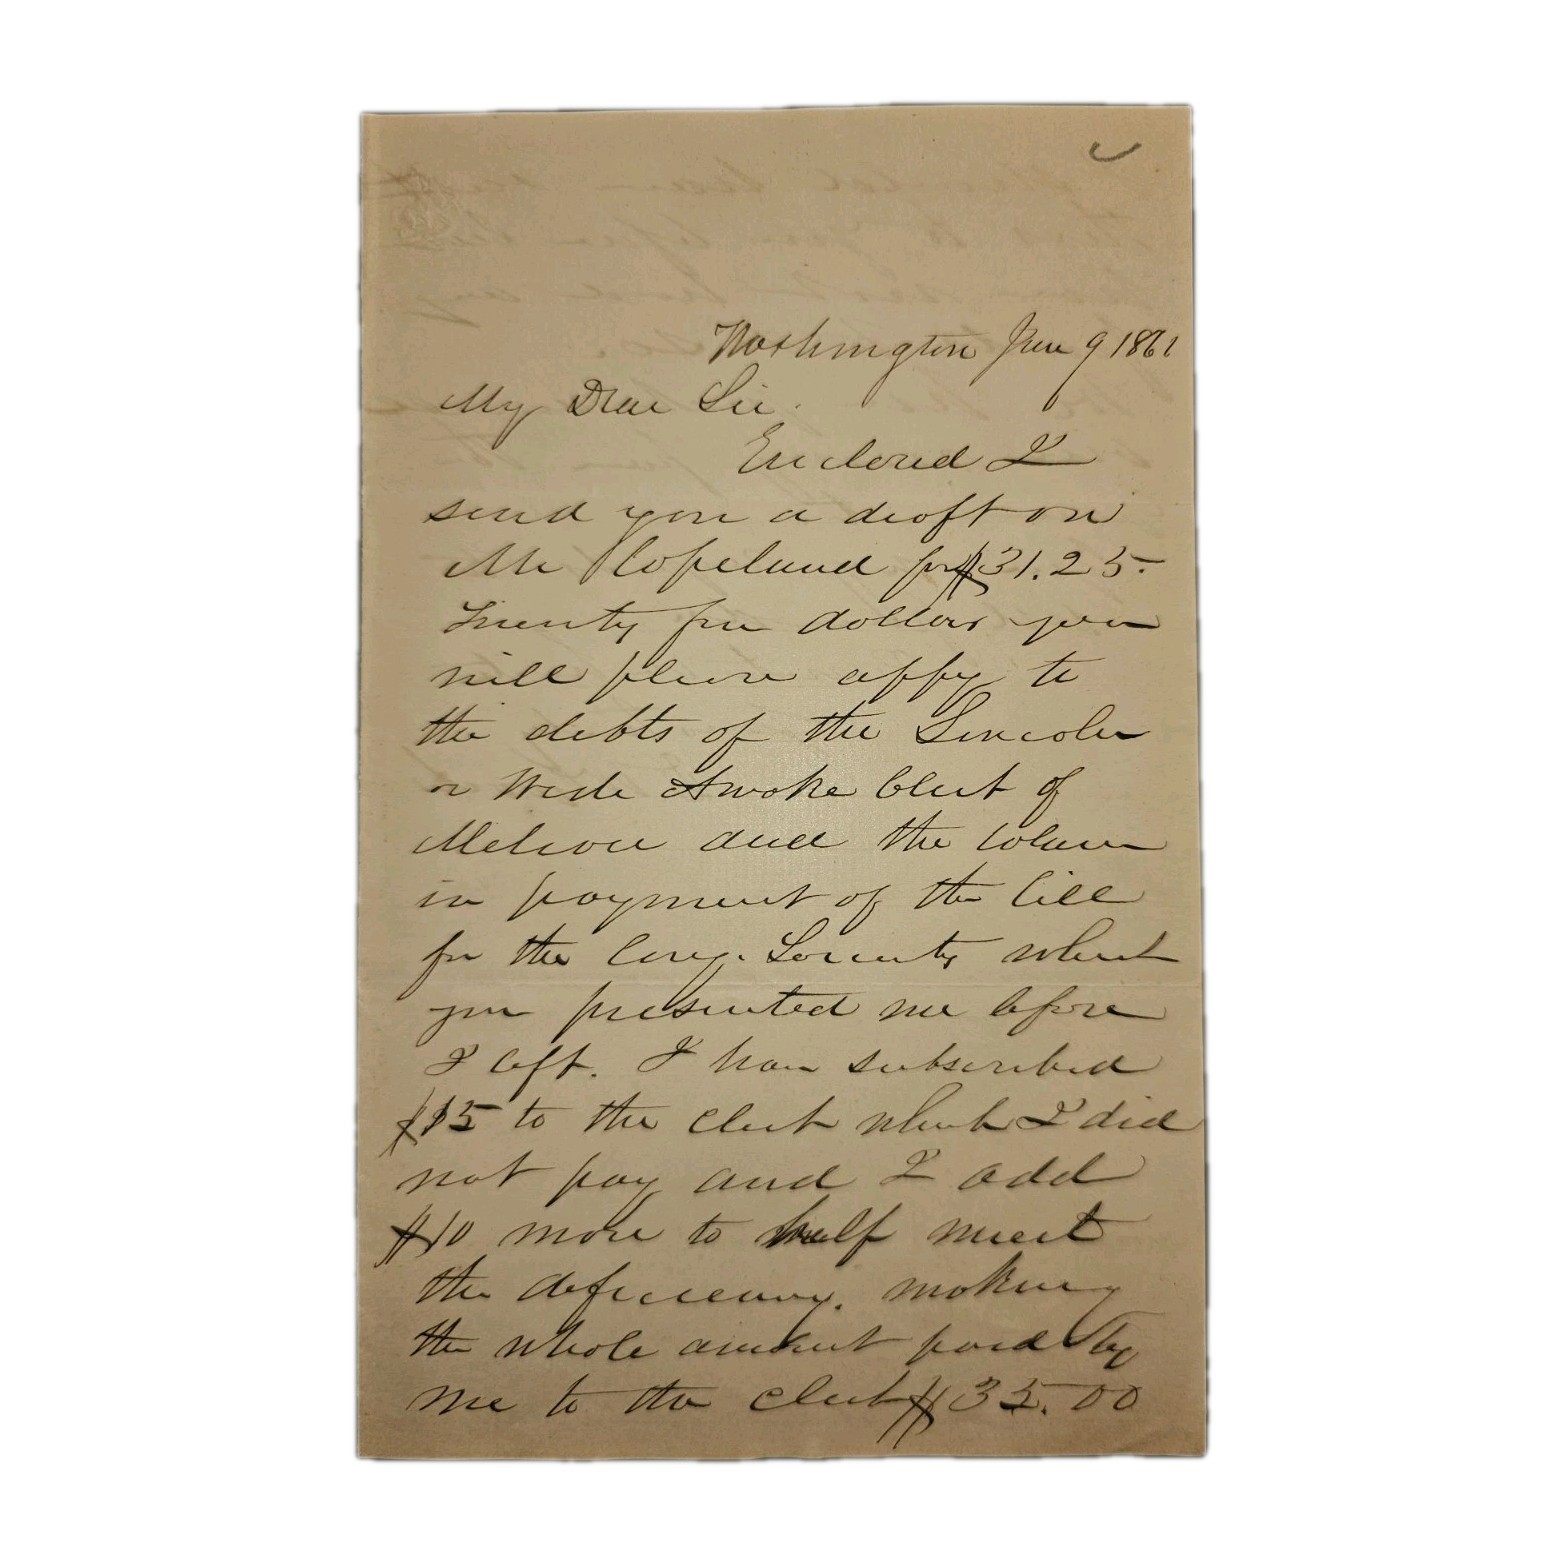 Washington Jan 9 1861
My Dear Sir.
Enclosed I
send you a draft on
Mr Copeland for $31.25
Twenty five dollars you
will please appy to
the debts of the Lincoln
or Wide Awake Club of
Melrose and the balance
in payment of the bill
for the Cong. Society which
you presented me before
I left. I have subscribed
$15 to the club which I did
not pay and I add
$10 more to help meet
the deficiency. making
the whole amount paid by
me to the club $35.00